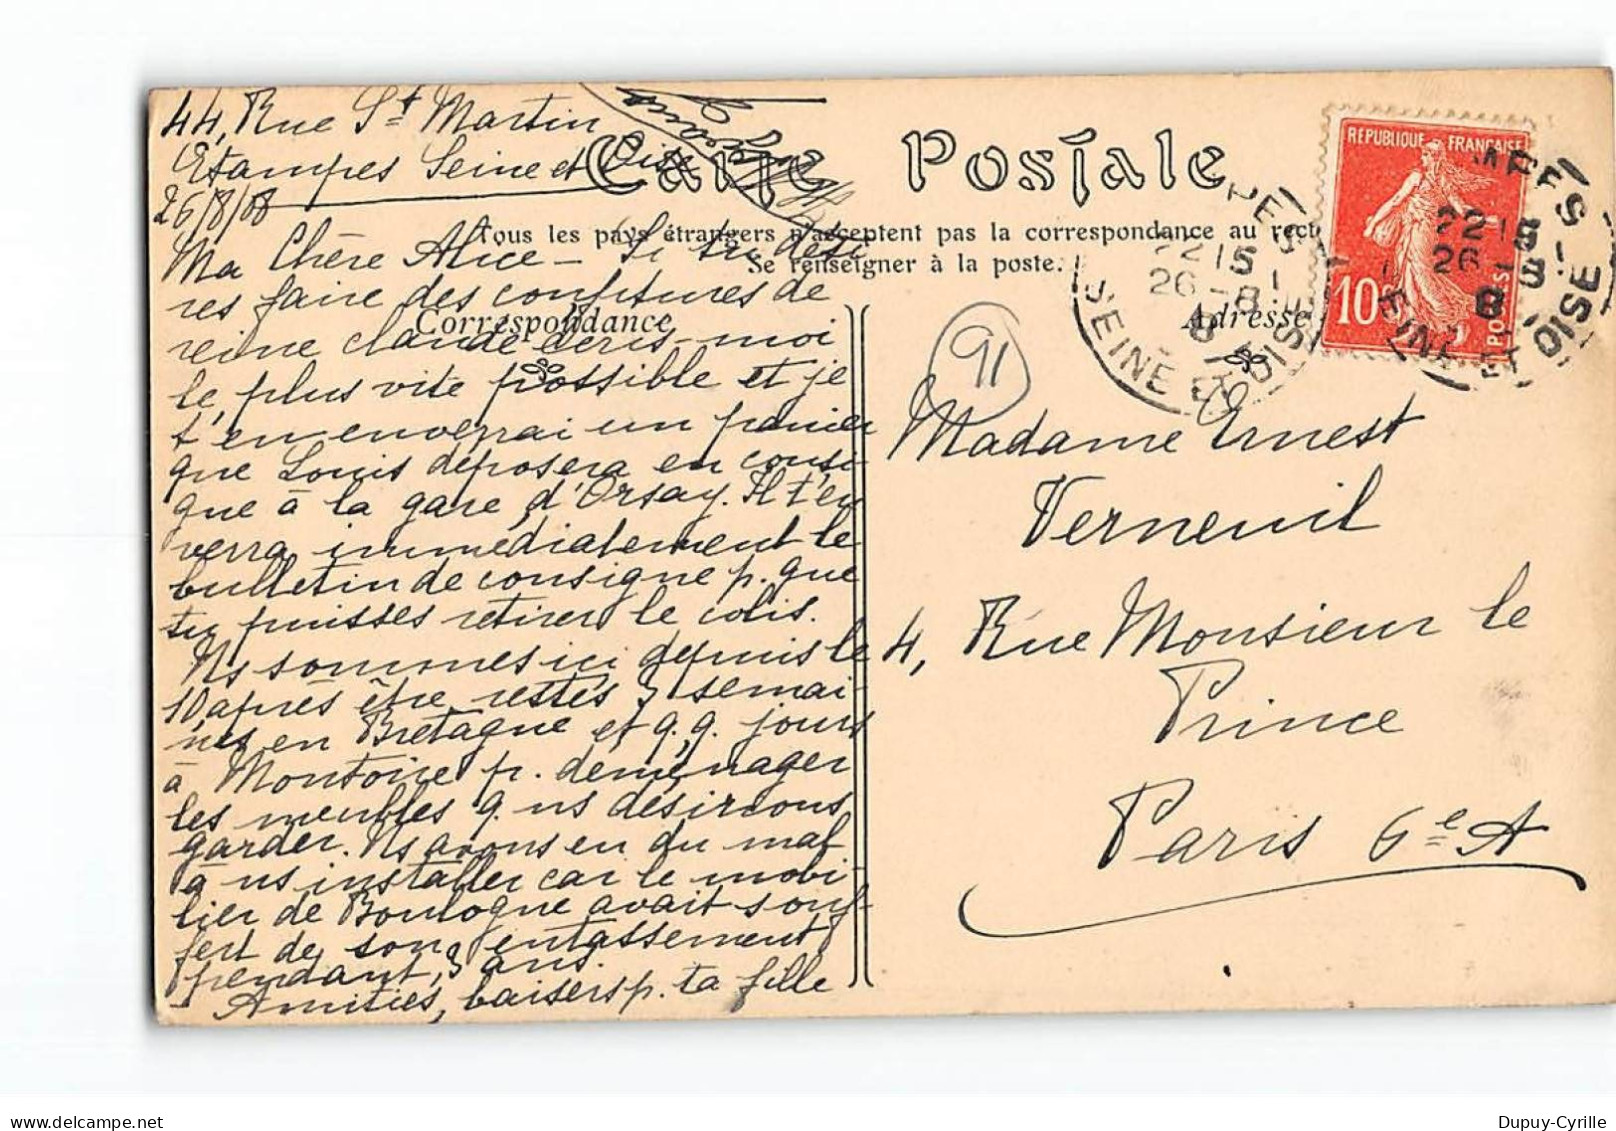 44, Rue St Martin
Etampes Seine et Oise
26/8/08
Carte Postale
Tous les pays étrangers n'acceptent pas la correspondance au rect
Se renseigner à la poste.
Correspondance
Ma Chère Alice – Si tu dési
res faire des confitures de
reine claude écris-moi
le plus vite possible et je
t'en enverrai un panier
que Louis déposera en consi
gne à la gare d'Orsay. Il t'en
verra immédiatement le
bulletin de consigne p. que
tu puisses retirer le colis.
Ns sommes ici depuis le
10 après être restés 3 semai
nes en Bretagne et q.q. jours
à Montoire pr. déménager
les meubles q. ns désirions
garder. Ns avons eu du mal
à ns installer car le mobi-
lier de Boulogne avait souf-
fert de son entassement
pendant 3 ans.
Amitiés, baisers p. ta fille
91
Adresse
Madame Ernest
Verneuil
4, Rue Monsieur le
Prince
Paris 6e A
RÉPUBLIQUE FRANÇAISE
10c
POSTES
22 15
26 - 8
8
SEINE ET OISE
22 15
26 - 8
8
SEINE ET OISE
delcampe.net
Dupuy-Cyrille